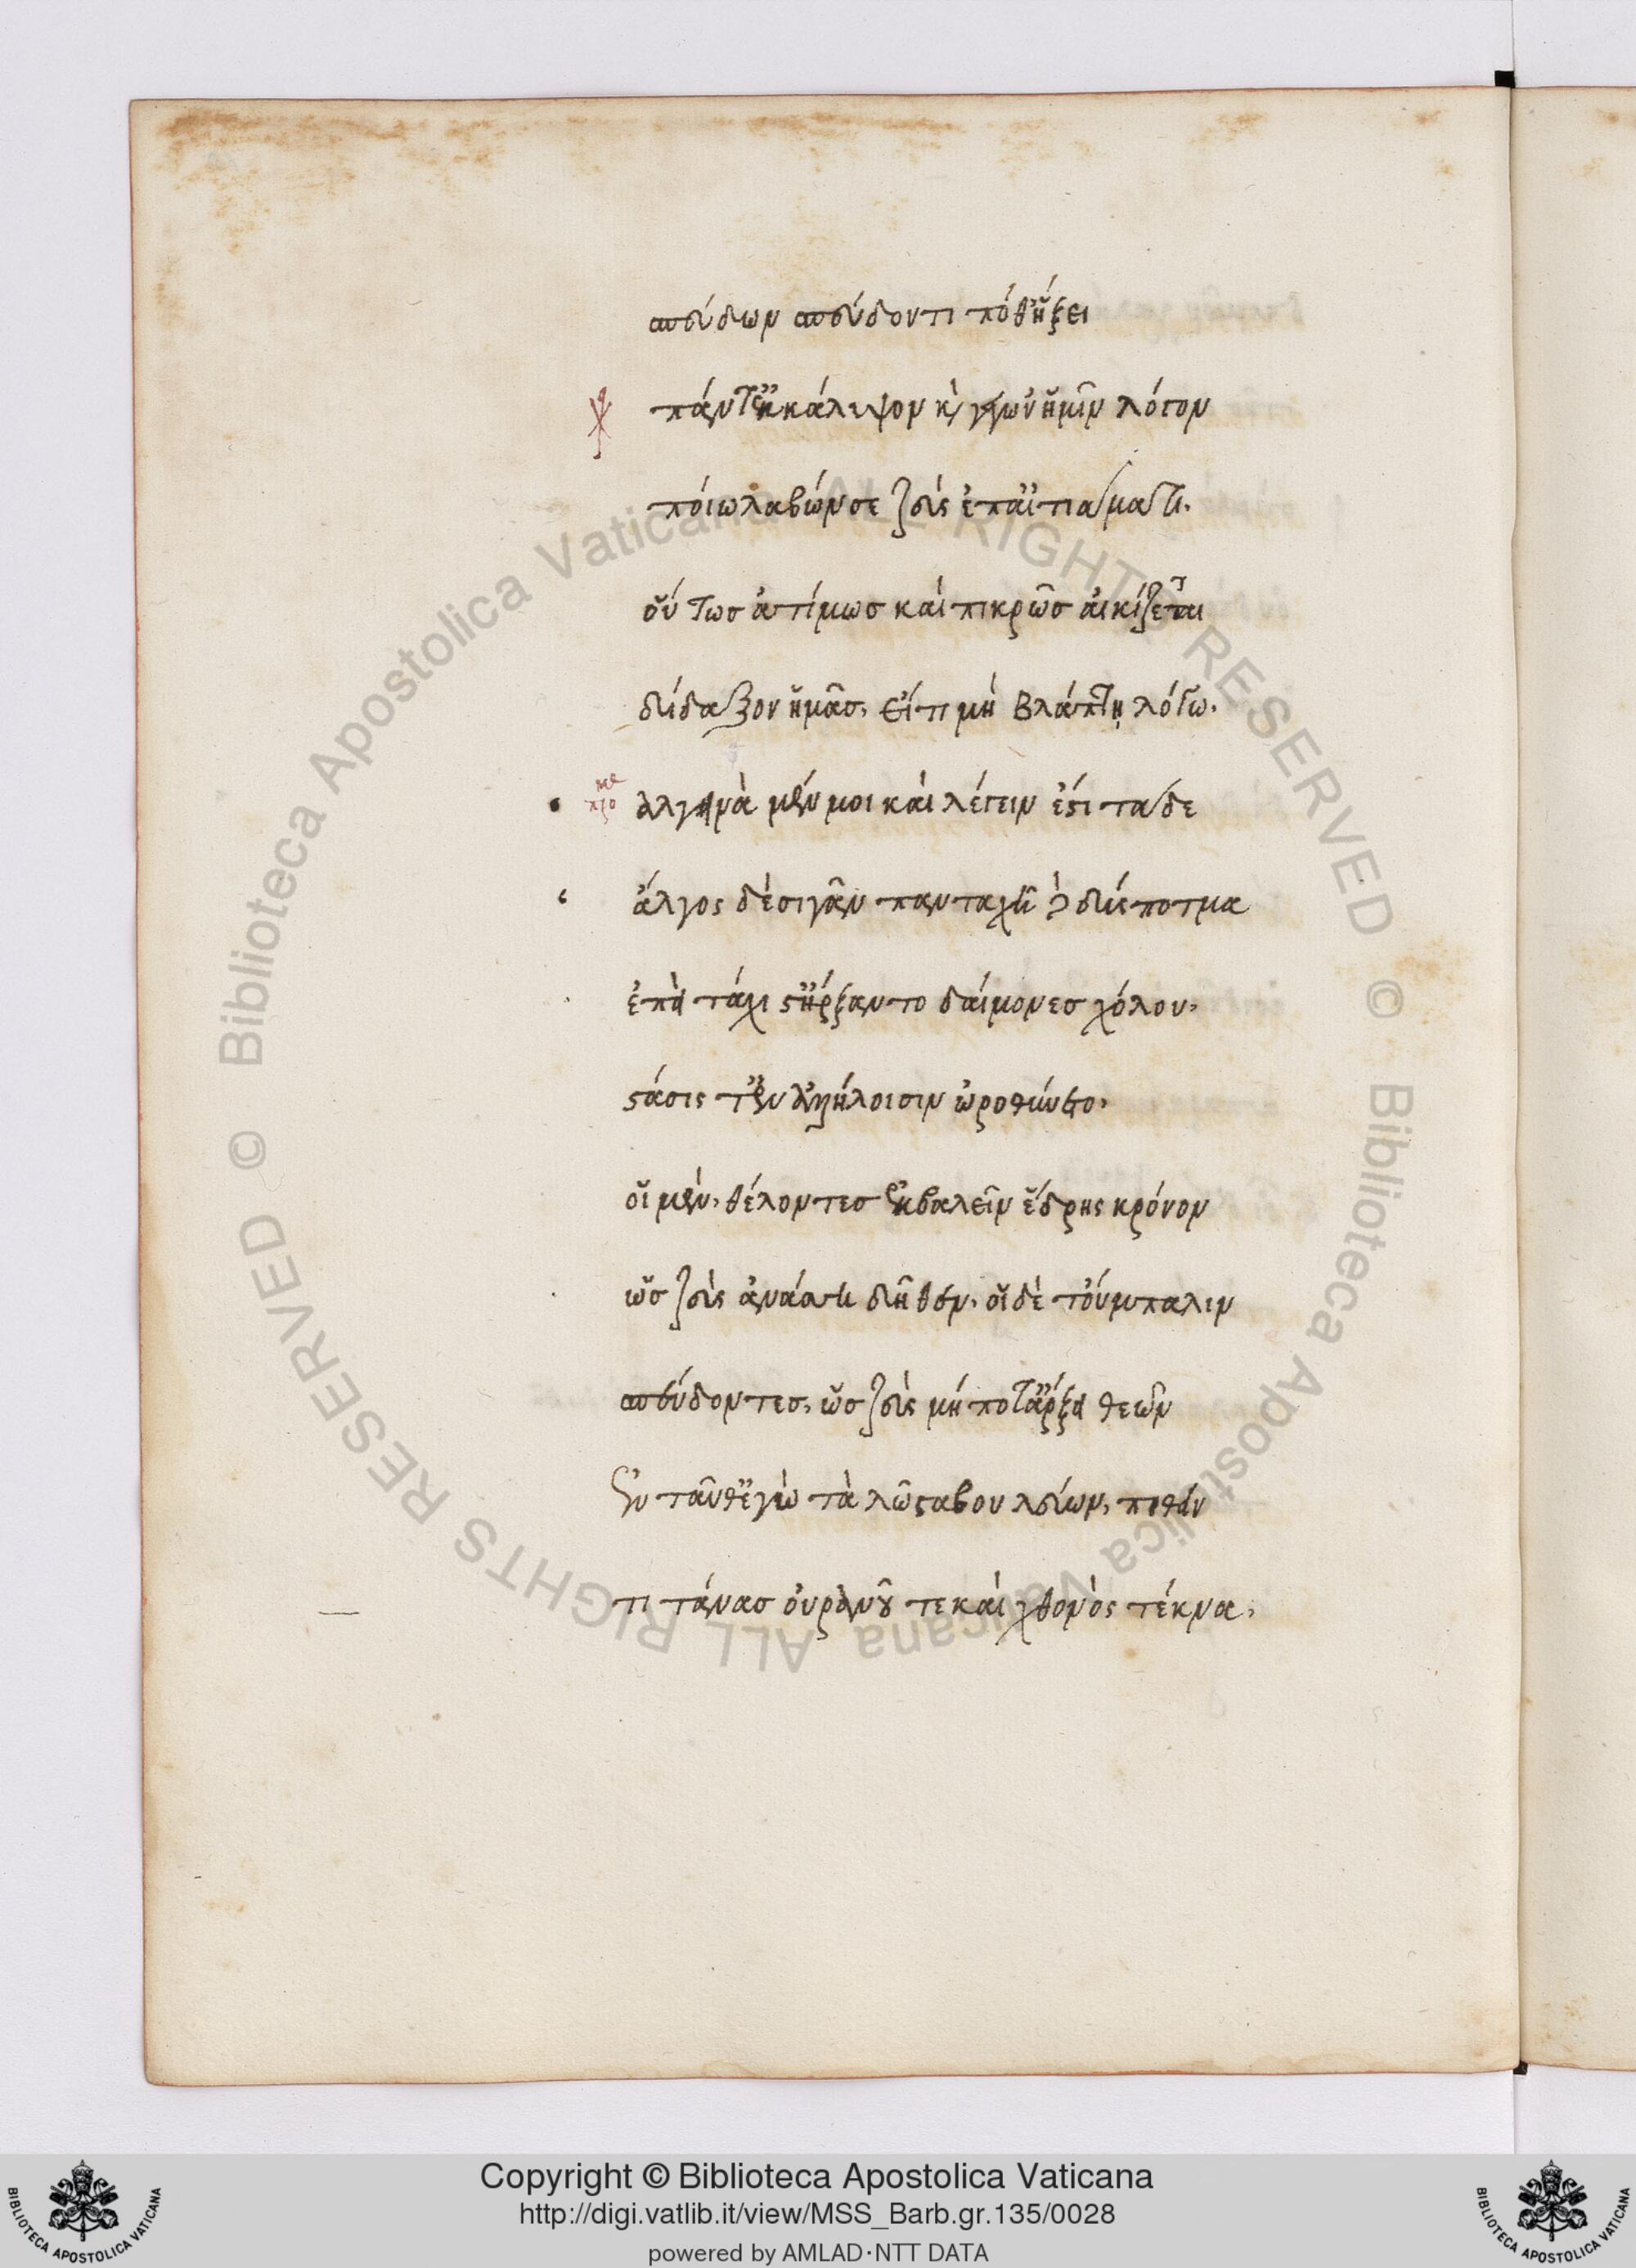 σπεύδων σπεύδοντί ποθ' ἥξει
χο πάντ' ἐκκάλυψον κὶ γέγων' ἡμῖν λόγον
ποίω λαβών σε ζεὺς ἐπ' αἰτιάματι.
οὕτωσ ἀτίμωσ καὶ πικρῶσ αἰκίζεται
δίδαξον ἡμᾶσ, εἴτι μὴ βλάπτη λόγω.
προμε ἀλγεινὰ μέν μοι καὶ λέγειν ἐστὶ τάδε
ἄλγος δὲ σιγᾶν πανταχῆ δὲ δύσποτμα
ἐπεὶ τάχιστ' ἤρξαντο δαίμονεσ χόλου,
στάσις τ' ἐν ἀλλήλοισιν ὠροθύνετο,
οἱ μὲν, θέλοντεσ ἐκβαλεῖν ἕδρης κρόνον
ὡσ ζεὺς ἀνάσσοι δῆθεν, οἱ δὲ τοὔμπαλιν
σπεύδοντεσ, ὡσ ζεὺς μήποτ' ἄρξει θεῶν
ἐνταῦθ' ἐγὼ τὰ λῶστα βουλεύων, πιθεῖν
τιτάνασ οὐρανοῦ τε καὶ χθονὸς τέκνα,
Biblioteca Apostolica Vaticana ALL RIGHTS RESERVED ©
Biblioteca Apostolica Vaticana ALL RIGHTS RESERVED ©
Copyright © Biblioteca Apostolica Vaticana
http://digi.vatlib.it/view/MSS_Barb.gr.135/0028
powered by AMLAD·NTT DATA
BIBLIOTECA APOSTOLICA VATICANA
BIBLIOTECA APOSTOLICA VATICANA